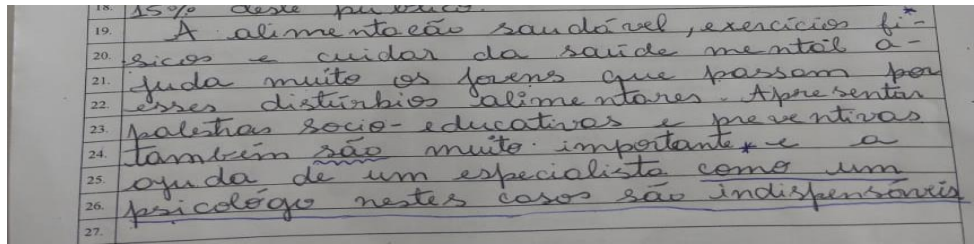 18. 15% deste público.
19. A alimentação saudável, exercícios fí-
20. sicos e cuidar da saúde mental a-
21. juda muito os jovens que passam por
22. esses distúrbios alimentares. Apresentar
23. palestras socio-educativas e preventivas
24. também são muito importante* e a
25. ajuda de um especialista como um
26. psicológo nestes casos são indispensáveis
27.